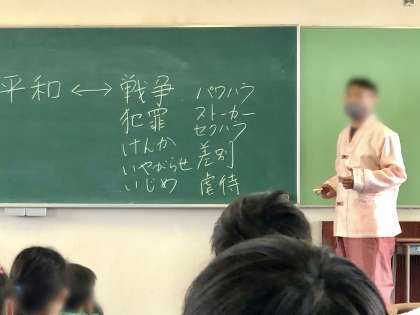 平和 ↔ 戦争 パワハラ
犯罪 ストーカー
けんか セクハラ
いやがらせ 差別
いじめ 虐待